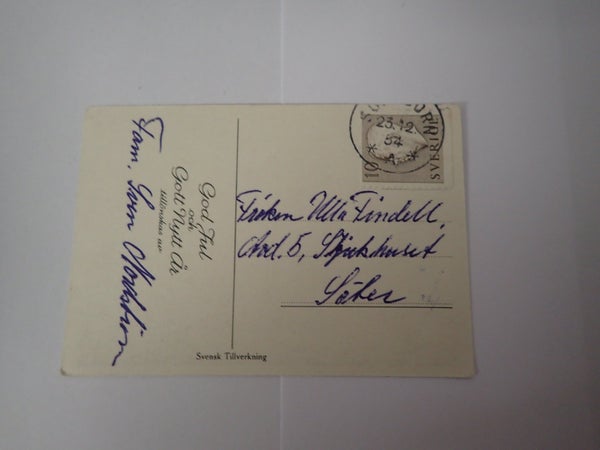 God Jul
och
Gott Nytt År
tillönskas av
Fam. Sven Nordström
Svensk Tillverkning
10
SVERIGE
23.12
54
* A *
Fröken Ulla Lindell,
Avd. 5, Sjukhuset
Säter